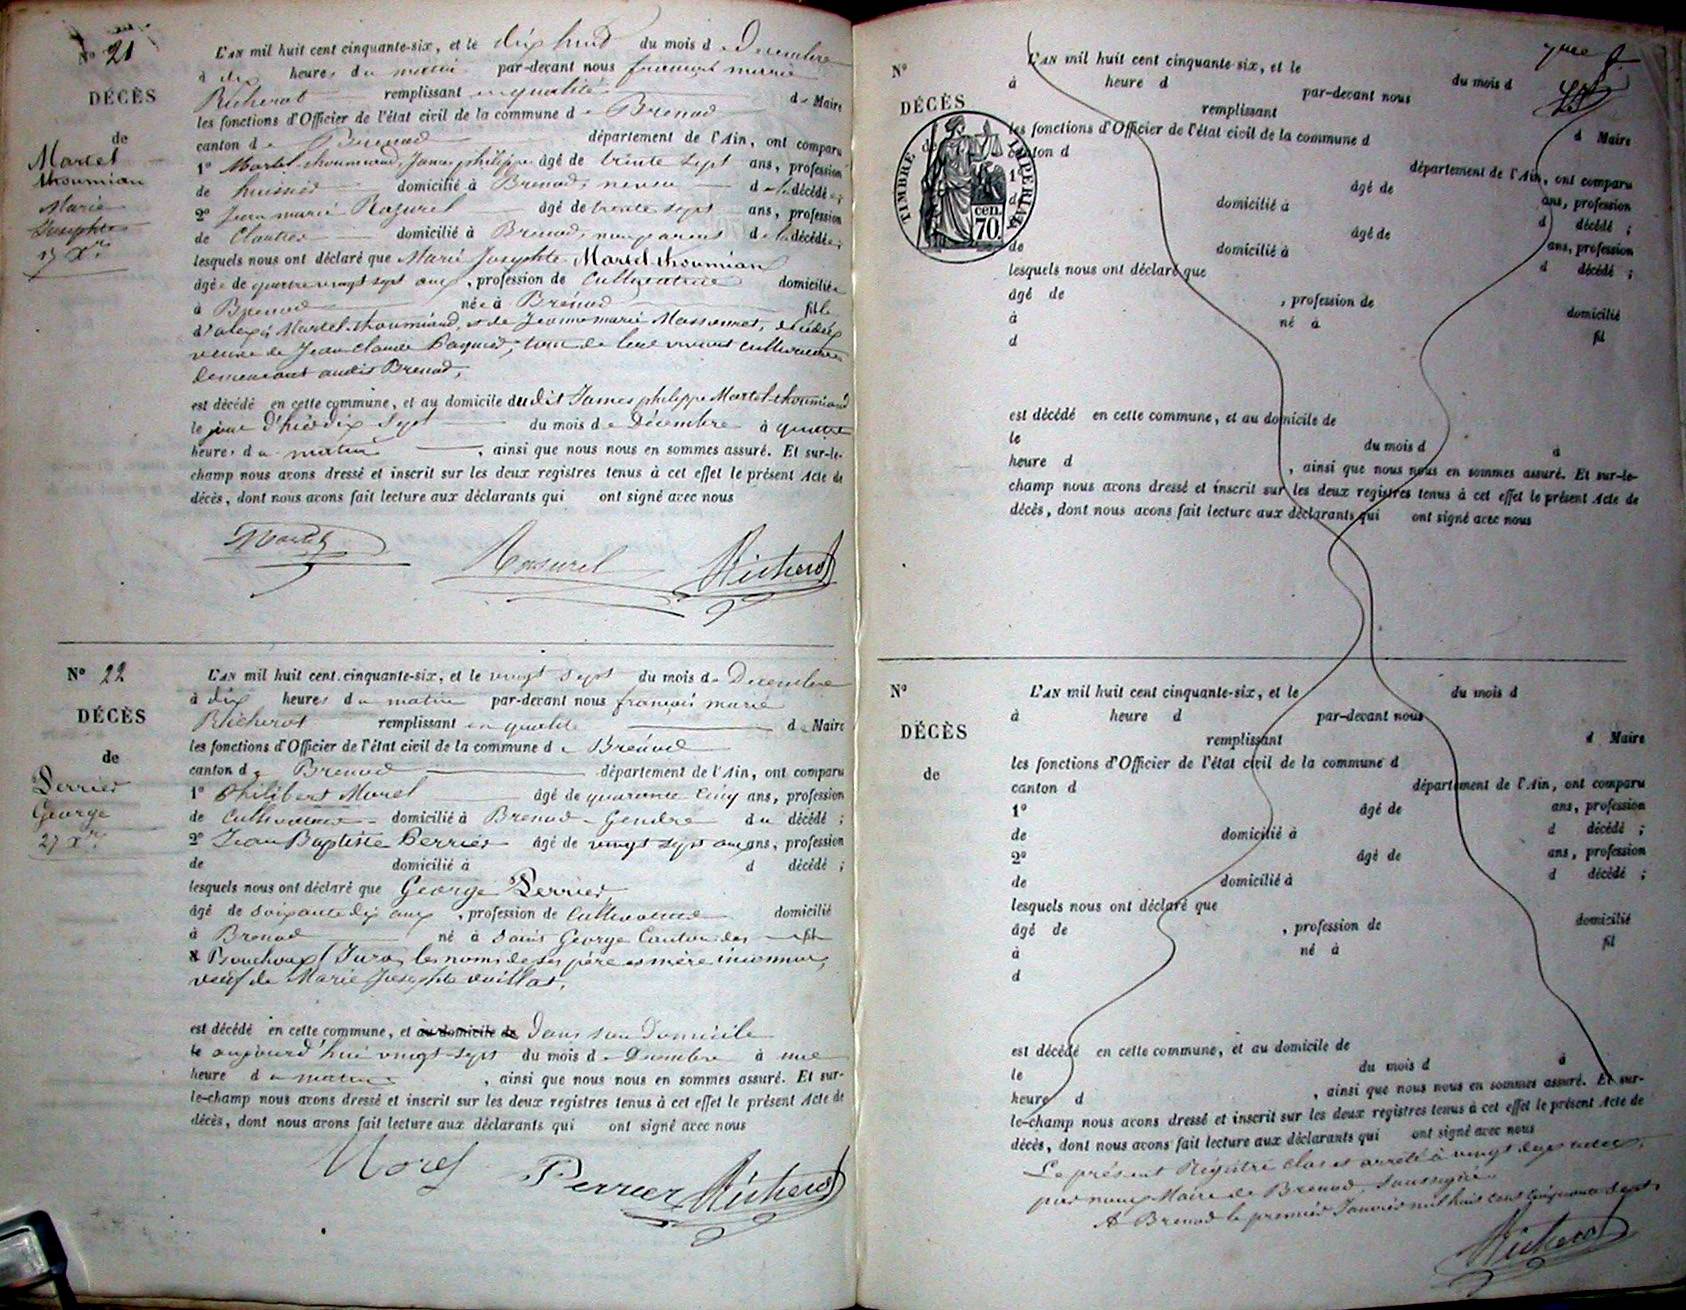 N° 21
DÉCÈS
de
Martel
thoumian
Marie
Josephte
17 Xbre
L'AN mil huit cent cinquante-six, et le dix huit du mois de Decembre
à dix heures du matin par-devant nous françois marie
Richerot remplissant en qualité de Maire
les fonctions d'Officier de l'état civil de la commune de Brenod
canton de Brenod département de l'Ain, ont comparu
1° Martel-thoumiand, James philippe âgé de trente sept ans, profession
de huissier domicilié à Brenod, neveu de la décédée;
2° Jean marie Rasurel âgé de trente sept ans, profession
de Cloutier domicilié à Brenod, non parent de la décédée;
lesquels nous ont déclaré que Marie Josephte Martel-thoumian
âgée de quatre vingt sept ans, profession de Cultivatrice domiciliée
à Brenod née à Brénod fille
d'alexis Martel-thoumiand, et de Jeanne marie Massonnet, décédés
veuve de Jean Claude Paquet, tous de leur vivant cultivateurs
demeurant audit Brenod,
est décédé en cette commune, et au domicile dudit James philippe Martel-thoumiand
le jour d'hier dix sept du mois de Décembre à quatre
heures du matin, ainsi que nous nous en sommes assuré. Et sur-le-
champ nous avons dressé et inscrit sur les deux registres tenus à cet effet le présent Acte de
décès, dont nous avons fait lecture aux déclarants qui ont signé avec nous
Martel Rasurel Richerot
N° 22
DÉCÈS
de
Perrier
George
27 Xbre
L'AN mil huit cent cinquante-six, et le vingt sept du mois de Decembre
à dix heures du matin par-devant nous françois marie
Richerot remplissant en qualité de Maire
les fonctions d'Officier de l'état civil de la commune de Brénod
canton de Brenod département de l'Ain, ont comparu
1° Philibert Morel âgé de quarante cinq ans, profession
de Cultivateur domicilié à Brenod Gendre du décédé;
2° Jean Baptiste Perrier âgé de vingt sept ans ans, profession
de domicilié à d décédé;
lesquels nous ont déclaré que George Perrier
âgé de soixante dix ans, profession de Cultivateur domicilié
à Brenod né à Saint George Canton des fil
Bouchoux (Jura, les noms de ses père et mère inconnus,
veuf de Marie Josephte vuillat,
est décédé en cette commune, et au domicile de dans son Domicile
le aujourd'hui vingt sept du mois de Decembre à une
heure du matin, ainsi que nous nous en sommes assuré. Et sur-
le-champ nous avons dressé et inscrit sur les deux registres tenus à cet effet le présent Acte de
décès, dont nous avons fait lecture aux déclarants qui ont signé avec nous
Morel Perrier Richerot
N°
DÉCÈS
de
TIMBRE IMPÉRIAL
cen.
70.
L'AN mil huit cent cinquante-six, et le du mois d
à heure d par-devant nous
remplissant d Maire
les fonctions d'Officier de l'état civil de la commune d
canton d département de l'Ain, ont comparu
1° âgé de ans, profession
de domicilié à d décédé;
âgé de ans, profession
de domicilié à d décédé;
lesquels nous ont déclaré que
âgé de , profession de domicilié
à né à fil
d
est décédé en cette commune, et au domicile de
le du mois d à
heure d , ainsi que nous nous en sommes assuré. Et sur-le-
champ nous avons dressé et inscrit sur les deux registres tenus à cet effet le présent Acte de
décès, dont nous avons fait lecture aux déclarants qui ont signé avec nous
N°
DÉCÈS
de
L'AN mil huit cent cinquante-six, et le du mois d
à heure d par-devant nous
remplissant d Maire
les fonctions d'Officier de l'état civil de la commune d
canton d département de l'Ain, ont comparu
1° âgé de ans, profession
de domicilié à d décédé;
2° âgé de ans, profession
de domicilié à d décédé;
lesquels nous ont déclaré que
âgé de , profession de domicilié
à né à fil
d
est décédé en cette commune, et au domicile de
le du mois d à
heure d , ainsi que nous nous en sommes assuré. Et sur-
le-champ nous avons dressé et inscrit sur les deux registres tenus à cet effet le présent Acte de
décès, dont nous avons fait lecture aux déclarants qui ont signé avec nous
Le présent Registre clos et arrêté à vingt deux actes,
par nous Maire de Brenod, soussigné
A Brenod le premier Janvier mil huit cent cinquante sept,
Richerot